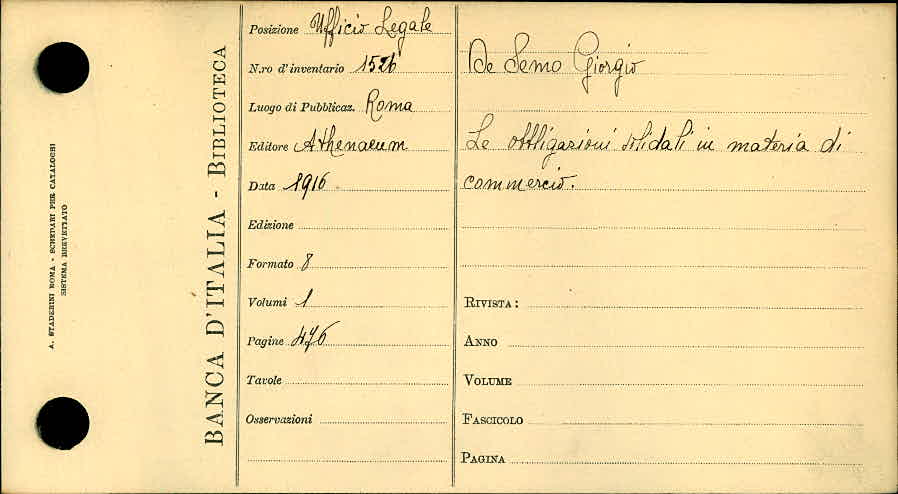 A. STADERINI ROMA - SCHEDARI PER CATALOGHI
SISTEMA BREVETTATO
BANCA D'ITALIA - BIBLIOTECA
Posizione Ufficio Legale
N.ro d'inventario 1526
Luogo di Pubblicaz. Roma
Editore Athenaeum
Data 1916
Edizione
Formato 8
Volumi 1
Pagine 476
Tavole
Osservazioni
De Semo Giorgio
Le obbligazioni solidali in materia di
commercio.
RIVISTA:
ANNO
VOLUME
FASCICOLO
PAGINA